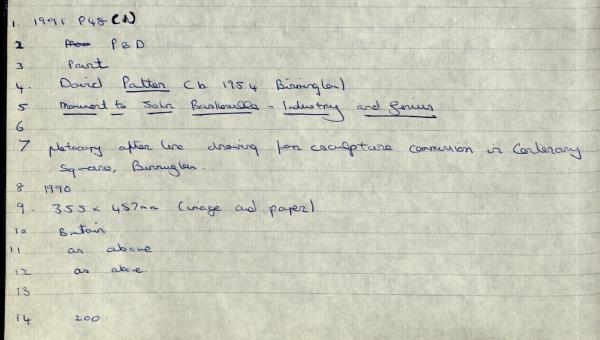 1. 1991 P48 (1)
2 P&D
3 Print
4. David Patten (b. 1954 Birmingham)
5 Monument to John Baskerville - Industry and Genius
6
7 photocopy after line drawing for sculpture commission in Centenary
Square, Birmingham.
8 1990
9. 355 x 457mm (image and paper)
10 Britain
11 as above
12 as above
13
14 200.